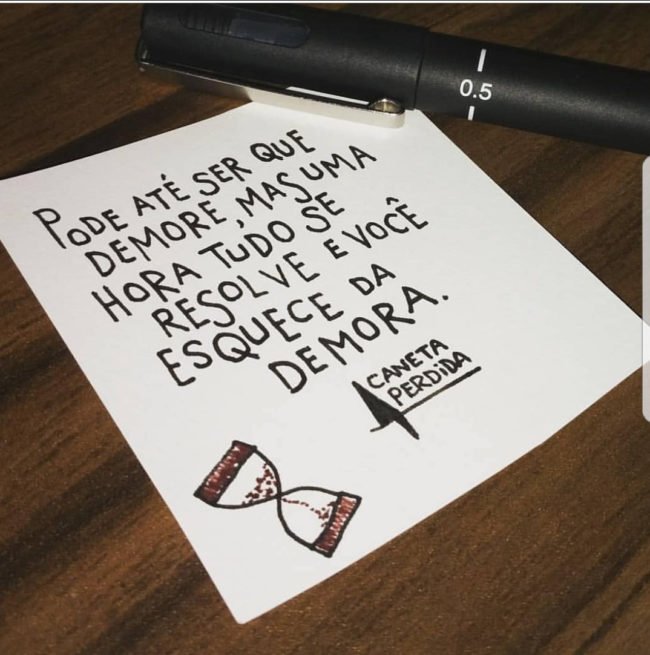 0.5
PODE ATÉ SER QUE
DEMORE, MAS UMA
HORA TUDO SE
RESOLVE E VOCÊ
ESQUECE DA
DEMORA.
CANETA
PERDIDA